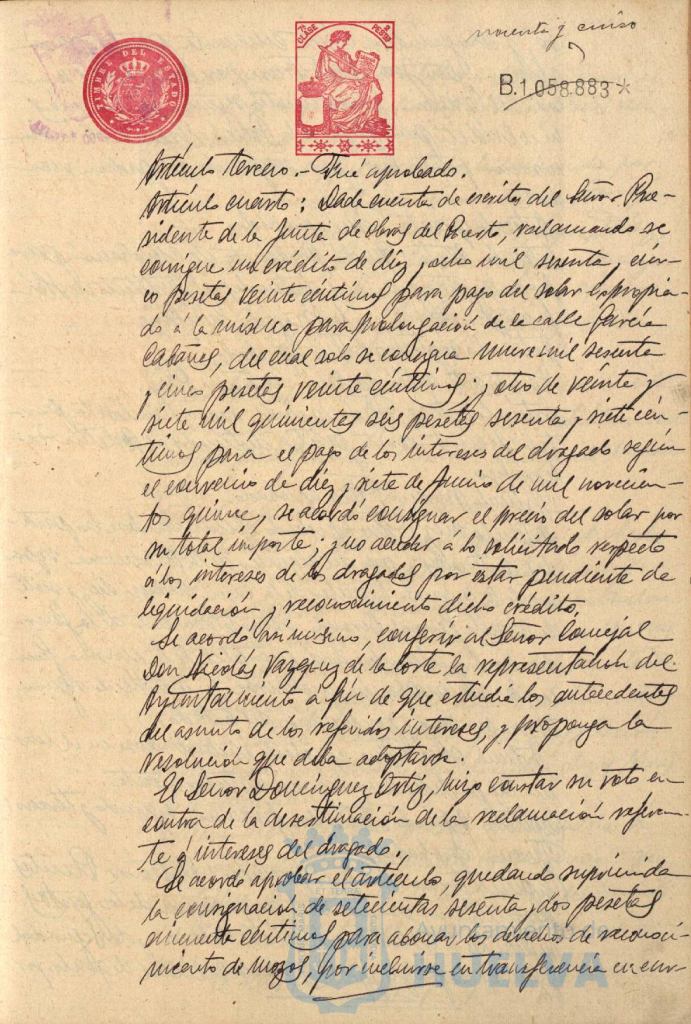 noventa y cinco
TIMBRE DEL ESTADO
7ª CLASE
PESETAS
B.1.058.883*
Artículo tercero.- Fué aprobado.
Artículo cuarto: Dada cuenta de escritos del Señor Pre-
sidente de la Junta de Obras del Puerto, reclamando se
consigne un crédito de diez y ocho mil sesenta y cin-
co pesetas veinte céntimos para pago del solar expropia-
do á la misma para prolongación de la calle García
Cabañas, del cual solo se consigna nueve mil sesenta
y cinco pesetas veinte céntimos; y otro de veinte y
siete mil quinientas seis pesetas sesenta y siete cén-
timos para el pago de los intereses del dragado según
el convenio de diez y siete de Junio de mil novecien-
tos quince, se acordó consignar el precio del solar por
su total importe; y no acceder á lo solicitado respecto
á los intereses de los dragados por estar pendiente de
liquidación y reconocimiento dicho crédito.
Se acordó asimismo, conferir al Señor Concejal
Don Nicolás Vazquez de la Corte la representación del
Ayuntamiento á fin de que estudie los antecedentes
del asunto de los referidos intereses, y proponga la
resolución que deba adoptarse.
El Señor Domínguez Ortiz, hizo constar su voto en
contra de la desestimación de la reclamación referen-
te á intereses del dragado.
Se acordó aprobar el artículo, quedando suprimida
la consignación de setecientas sesenta y dos pesetas
cincuenta céntimos para abonar los derechos de reconoci-
miento de mozos, por incluirse en transferencia en cur-
HUELVA